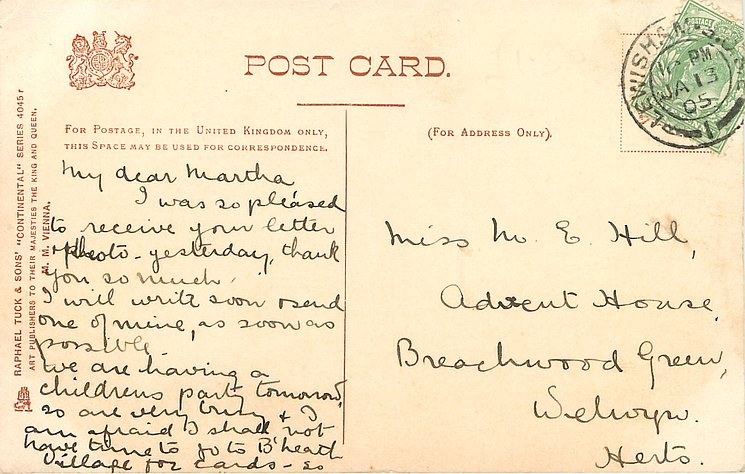 POST CARD.
FOR POSTAGE, IN THE UNITED KINGDOM ONLY,
THIS SPACE MAY BE USED FOR CORRESPONDENCE.
(FOR ADDRESS ONLY).
RAPHAEL TUCK & SONS' "CONTINENTAL" SERIES 4045 r
ART PUBLISHERS TO THEIR MAJESTIES THE KING AND QUEEN.
M. M. VIENNA.
POSTAGE
LEWISHAM S.O.
PM
JA 13
05
My dear Martha
I was so pleased
to receive your letter
& photo - yesterday, thank
you so much.
I will write soon & send
one of mine, as soon as
possible
We are having a
childrens party tomorrow,
so are very busy & I
am afraid I shall not
have time to go to B'heath
Village for cards - so
Miss M. E. Hill,
Advent House,
Breachwood Green,
Welwyn.
Herts.